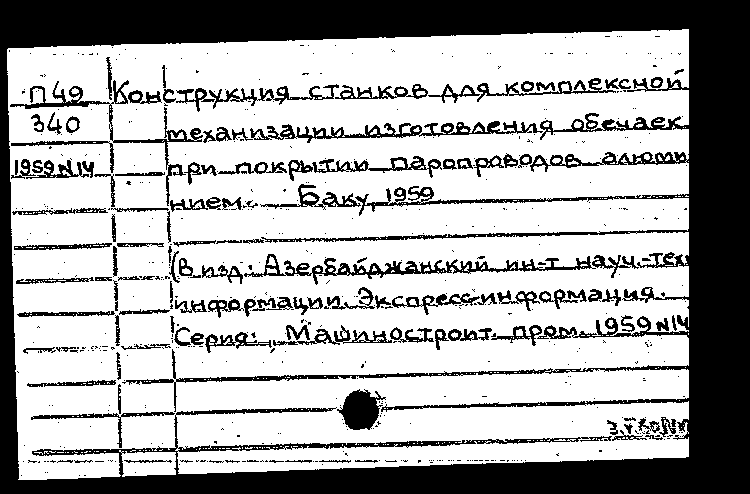 П49 Конструкция станков для комплексной
340 механизации изготовления обечаек
1959 N14 при покрытии паропроводов алюми
нием. Баку, 1959
(В изд.: Азербайджанский ин-т науч.-тех
информации. Экспресс-информация.
Серия: Машиностроит. пром. 1959 N14